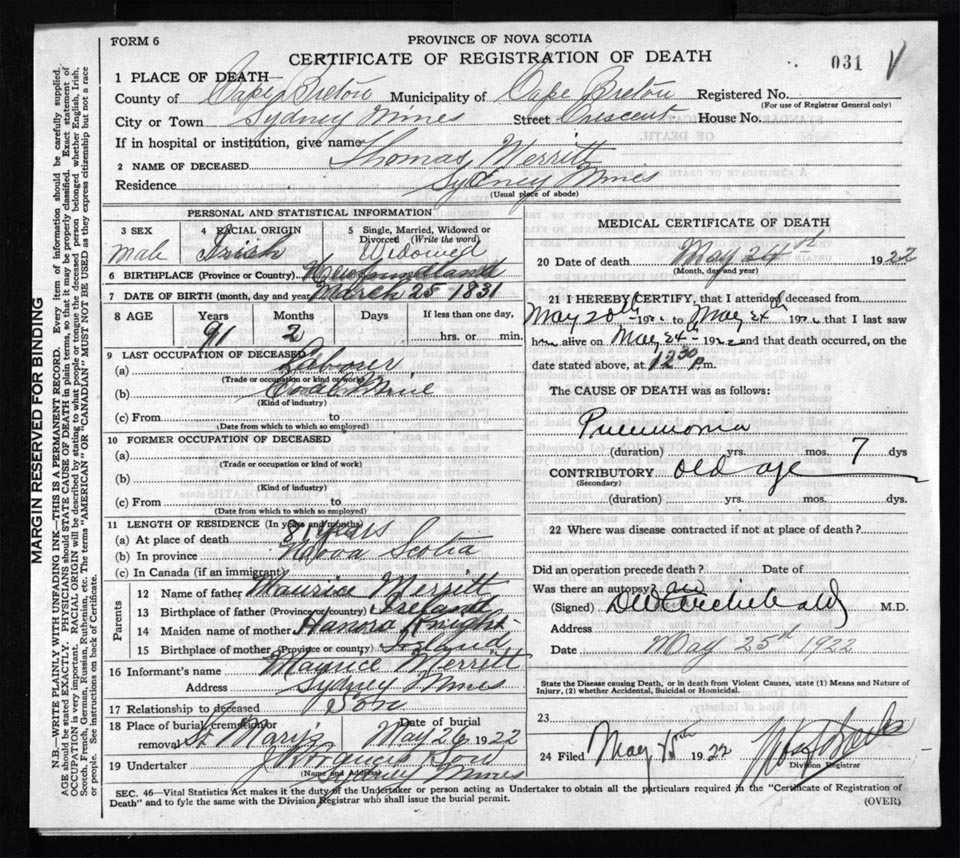 FORM 6
PROVINCE OF NOVA SCOTIA
CERTIFICATE OF REGISTRATION OF DEATH
031 V
1 PLACE OF DEATH—
County of Cape Breton Municipality of Cape Breton Registered No.
(For use of Registrar General only)
City or Town Sydney Mines Street Crescent House No.
If in hospital or institution, give name
2 NAME OF DECEASED Thomas Merritt
Residence Sydney Mines
(Usual place of abode)
PERSONAL AND STATISTICAL INFORMATION
3 SEX 4 RACIAL ORIGIN 5 Single, Married, Widowed or Divorced (Write the word)
male Irish Widowed
6 BIRTHPLACE (Province or Country) Newfoundland
7 DATE OF BIRTH (month, day and year) March 25 1831
8 AGE Years Months Days If less than one day,
91 2 hrs. or min.
9 LAST OCCUPATION OF DECEASED
(a) Labourer
(Trade or occupation or kind or work)
(b) Coal Mine
(Kind of industry)
(c) From to
(Date from which to which so employed)
10 FORMER OCCUPATION OF DECEASED
(a)
(Trade or occupation or kind of work)
(b)
(Kind of industry)
(c) From to
(Date from which to which so employed)
11 LENGTH OF RESIDENCE (In years and months)
(a) At place of death years
(b) In province Nova Scotia
(c) In Canada (if an immigrant)
Parents
12 Name of father Maurice Merritt
13 Birthplace of father (Province or country) Ireland
14 Maiden name of mother Hanora Knight
15 Birthplace of mother (Province or country)
16 Informant's name Maurice Merritt
Address Sydney Mines
17 Relationship to deceased Son
18 Place of burial, cremation or removal St Mary's Date of burial May 26 1922
19 Undertaker
(Name and Address)
Sydney Mines
MEDICAL CERTIFICATE OF DEATH
20 Date of death May 24th 1922
(Month, day and year)
21 I HEREBY CERTIFY, that I attended deceased from
May 20th 1922 to May 24th 1922 that I last saw
him alive on May 24th 1922 and that death occurred, on the
date stated above, at 12.30 p.m.
The CAUSE OF DEATH was as follows:
Pneumonia
(duration) yrs. mos. 7 dys
CONTRIBUTORY old age
(Secondary)
(duration) yrs. mos. dys.
22 Where was disease contracted if not at place of death?
Did an operation precede death? Date of
Was there an autopsy
(Signed) M.D.
Address
Date May 25th 1922
State the Disease causing Death, or in death from Violent Causes, state (1) Means and Nature of
Injury, (2) whether Accidental, Suicidal or Homicidal.
23
24 Filed May 1922
Division Registrar
SEC. 46—Vital Statistics Act makes it the duty of the Undertaker or person acting as Undertaker to obtain all the particulars required in the "Certificate of Registration of
Death" and to fyle the same with the Division Registrar who shall issue the burial permit.
(OVER)
MARGIN RESERVED FOR BINDING
N.B.—WRITE PLAINLY WITH UNFADING INK—THIS IS A PERMANENT RECORD. Every item of information should be carefully supplied.
AGE should be stated EXACTLY. PHYSICIANS should STATE CAUSE OF DEATH in plain terms, so that it may be properly classified. Exact statement of
OCCUPATION is very important. RACIAL ORIGIN will be described by stating to what people or tongue the deceased person belonged whether English, Irish,
Scotch, French, German, Russian, Ruthenian, etc. The terms "AMERICAN" or "CANADIAN" MUST NOT BE USED as they express citizenship but not a race
or people. See instructions on back of Certificate.